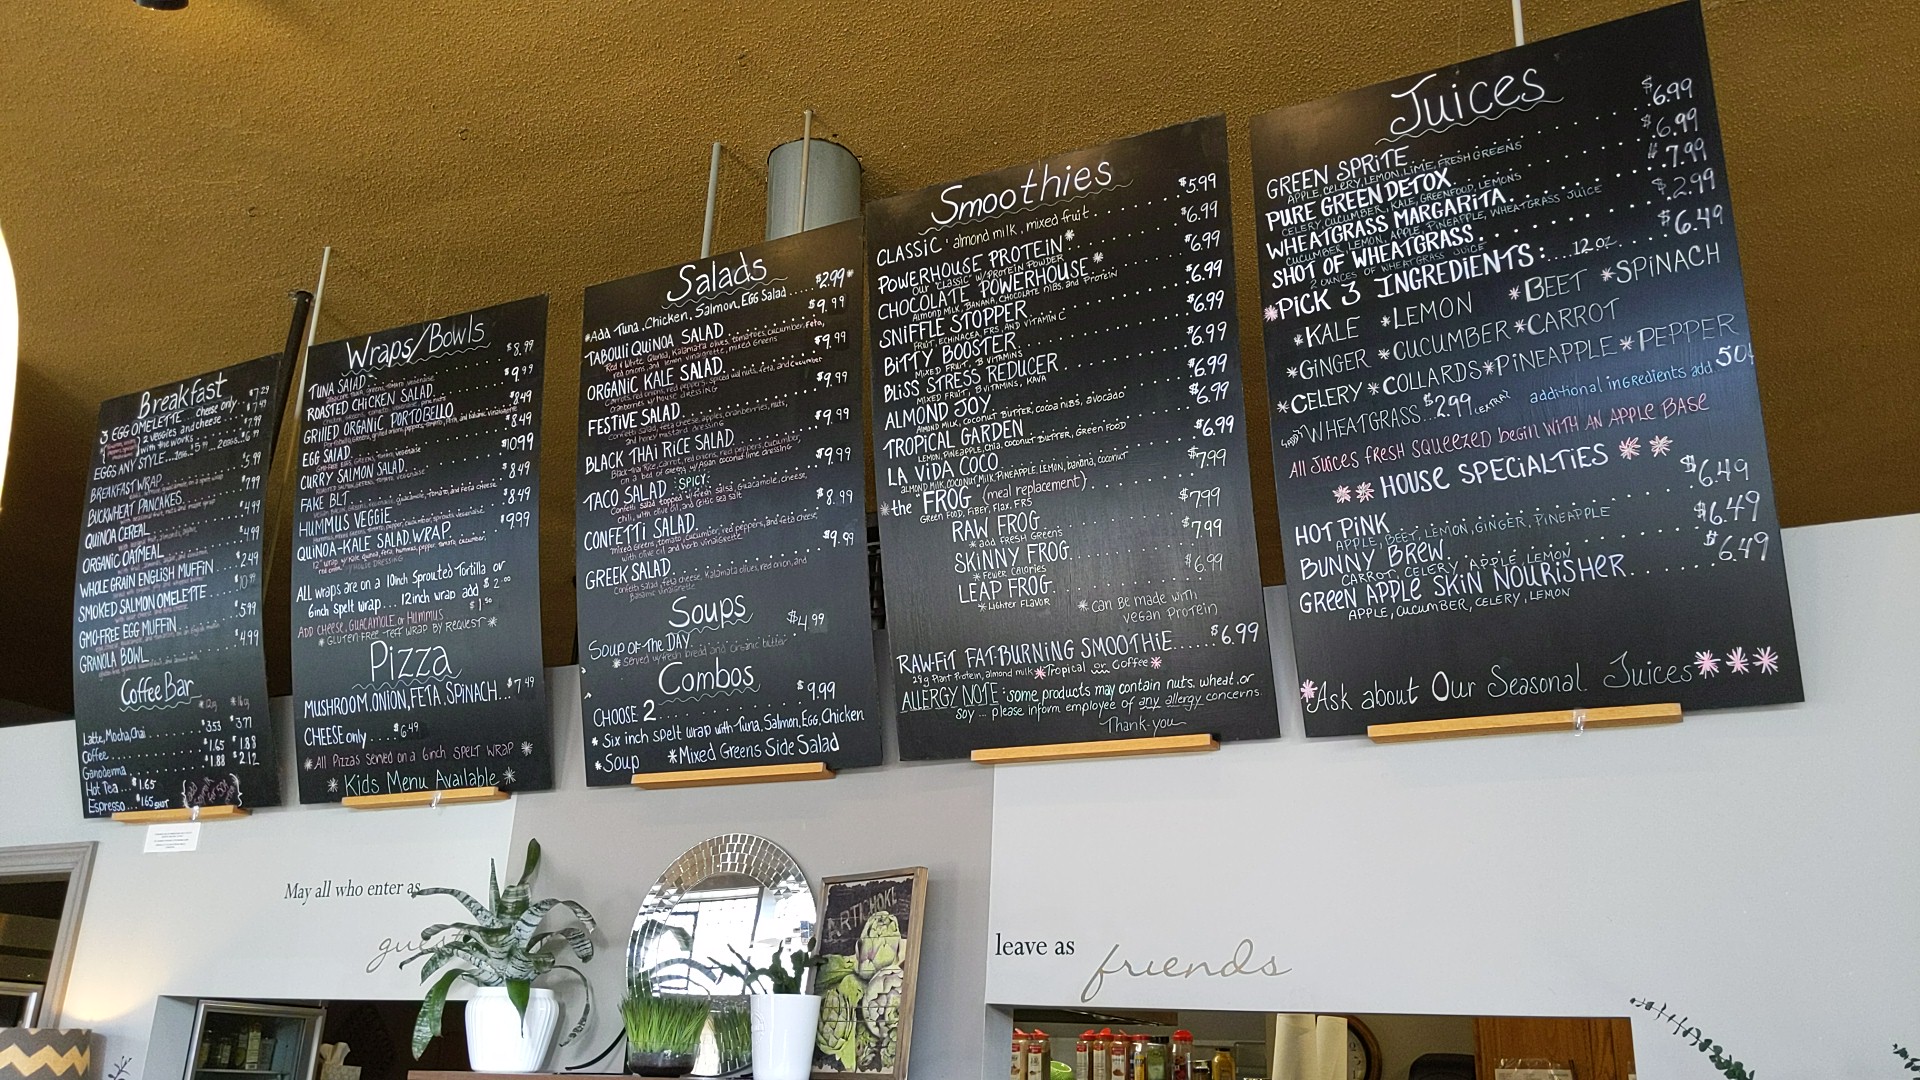 Breakfast
3 EGG OMELETTE... cheese only $7.29
2 veggies and cheese
with the works
EGGS ANY STYLE
BREAKFAST WRAP $5.99
BUCKWHEAT PANCAKES $7.99
QUINOA CEREAL $4.99
ORGANIC OATMEAL $4.99
WHOLE GRAIN ENGLISH MUFFIN $2.49
SMOKED SALMON OMELETTE
GMO-FREE EGG MUFFIN $5.99
GRANOLA BOWL $4.99
Coffee Bar
Latte, Mocha, Chai $3.53 $3.77
Coffee $1.65 $1.88
Ganoderma $1.88 $2.12
Hot Tea... $1.65
Espresso... $1.65 SHOT
Wraps/Bowls
TUNA SALAD $8.99
ROASTED CHICKEN SALAD $9.99
GRILLED ORGANIC PORTOBELLO $8.49
EGG SALAD $8.49
CURRY SALMON SALAD $10.99
FAKE BLT $8.49
HUMMUS VEGGIE $8.49
QUINOA-KALE SALAD WRAP $9.99
ALL wraps are on a 10inch Sprouted Tortilla or
6inch spelt wrap... 12inch wrap add $2.00
ADD CHEESE, GUACAMOLE, or HUMMUS $1.50
*GLUTEN FREE TEFF WRAP BY REQUEST*
Pizza
MUSHROOM, ONION, FETA, SPINACH... $7.49
CHEESE only.... $6.49
*ALL PIZZAS SERVED ON A 6inch SPELT WRAP*
*Kids Menu Available*
Salads
*Add Tuna, Chicken, Salmon, Egg Salad..... $2.99*
TABOULI QUINOA SALAD $9.99
Red & White Quinoa, Kalamata olives, tomatoes, cucumber, Feta,
red onions, and lemon vinaigrette, mixed Greens
ORGANIC KALE SALAD $9.99
Carrots, red onions, red peppers, spiced walnuts, feta, and cucumber
cranberries w/HOUSE DRESSING
FESTIVE SALAD $9.99
confetti salad, feta cheese, apples, cranberries, nuts,
and honey mustard dressing
BLACK THAI RICE SALAD $9.99
Black Thai Rice, carrot, red onions, red peppers, cucumber,
on a bed of Greens, w/Asian coconut-lime dressing
TACO SALAD :SPICY: $9.99
Confetti Salad topped w/fresh salsa, Guacamole, cheese,
chili, with olive oil, and celtic sea salt
CONFETTI SALAD $8.99
mixed greens, tomato, cucumber, red peppers, and feta cheese
with olive oil and herb vinaigrette
GREEK SALAD $9.99
Confetti salad, feta cheese, Kalamata olives, red onion, and
Balsamic Vinaigrette
Soups
SOUP OF THE DAY $4.99
*Served w/fresh bread and organic butter
Combos
CHOOSE 2 $9.99
*Six inch spelt wrap with Tuna, Salmon, Egg, Chicken
*Soup *Mixed Greens Side Salad
Smoothies
CLASSIC almond milk, mixed fruit $5.99
POWERHOUSE PROTEIN* $6.99
Our "classic" w/PROTEIN POWDER
CHOCOLATE POWERHOUSE* $6.99
Almond Milk, BANANA, CHOCOLATE NIBS, and PROTEIN
SNIFFLE STOPPER $6.99
FRUIT, ECHINACEA, FRS, AND VITAMIN C
BITTY BOOSTER $6.99
MIXED FRUIT, B VITAMINS
BLISS STRESS REDUCER $6.99
MIXED FRUIT, B VITAMINS, KAVA
ALMOND JOY $6.99
ALMOND MILK, COCONUT BUTTER, cocoa NIBS, avocado
TROPICAL GARDEN $6.99
LEMON, PINEAPPLE, Chia, coconut BUTTER, Green FOOD
LA VIDA COCO $6.99
ALMOND MILK, COCONUT MILK, PINEAPPLE, LEMON, banana, coconut
*the FROG (meal replacement) $7.99
Green FOOD, FIBER, Flax, FRS
RAW FROG $7.99
*add FRESH Greens
SKINNY FROG $7.99
*Fewer calories
LEAP FROG $6.99
*Lighter FLAVOR
*can be made with
vegan protein
RAW-FIT FAT-BURNING SMOOTHIE...... $6.99
Plant Protein, almond milk *Tropical or Coffee*
ALLERGY NOTE: some products may contain nuts, wheat, or
soy... please inform employee of any allergy concerns.
Thank-you
Juices
GREEN SPRITE $6.99
APPLE, CELERY, LEMON, LIME, FRESH GREENS
PURE GREEN DETOX $6.99
CELERY, CUCUMBER, KALE, GREENFOOD, LEMONS
WHEATGRASS MARGARITA $7.99
CUCUMBER, LEMON, APPLE, PINEAPPLE, WHEATGRASS JUICE
SHOT OF WHEATGRASS $2.99
2 OUNCES OF WHEATGRASS JUICE
*PICK 3 INGREDIENTS:...12 oz... $6.49
*KALE *LEMON *BEET *SPINACH
*GINGER *CUCUMBER *CARROT
*CELERY *COLLARDS *PINEAPPLE *PEPPER
WHEATGRASS $2.99 (EXTRA) additional ingredients add 50¢
All Juices fresh squeezed begin WITH AN APPLE BASE
** HOUSE SPECIALTIES **
HOT PINK $6.49
APPLE, BEET, LEMON, GINGER, PINEAPPLE
BUNNY BREW $6.49
CARROT, CELERY, APPLE, LEMON
GREEN APPLE SKIN NOURISHER $6.49
APPLE, CUCUMBER, CELERY, LEMON
*Ask about Our Seasonal Juices***
May all who enter as
guest
leave as
friends
ARTICHOKE